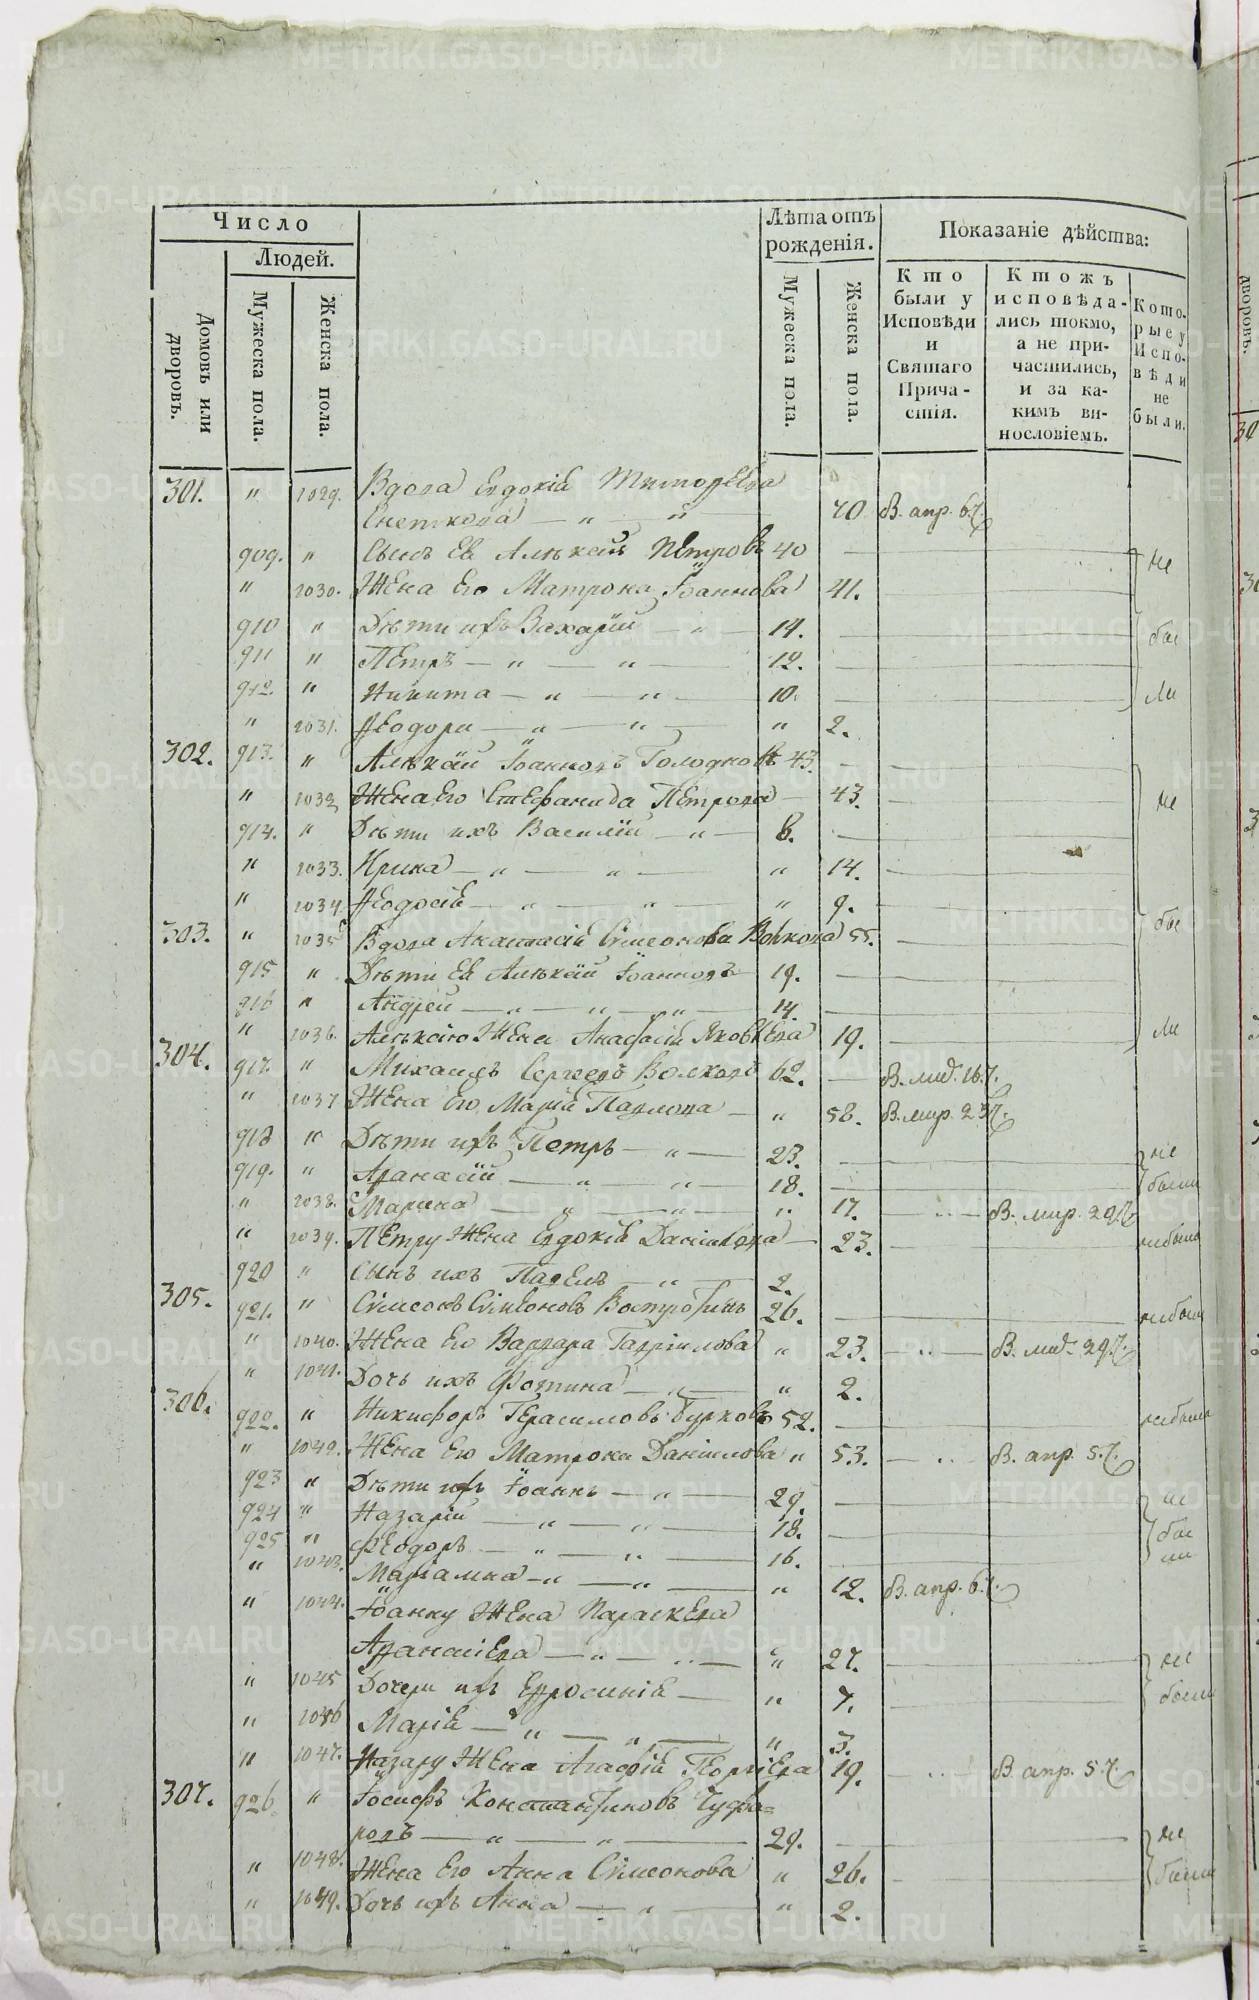 Число
Людей.
Домовъ или дворовъ.
Мужеска пола.
Женска пола.
Лѣта отъ рожденія.
Мужеска пола.
Женска пола.
Показаніе дѣйства:
Кто были у Исповѣди и Святаго Причастія.
Ктожъ исповѣда-лись токмо, а не при-частились, и за ка-кимъ ви-нословіемъ.
Кото-рые у Испо-вѣди не были.
301. " 1029. Вдова Евдокія Тимофѣева
Снеткова — " — " — 70 В. апр. 6.
909. " Сынъ Ея Алѣксѣй Пѣтровъ 40 — не
" 1030. Жена Его Матрона Іоаннова 41.
910 " Дѣти ихъ Захарій — " — 14. бы
911 " Пѣтръ — " — " — 12.
912. " Никита — " — " — 10. ли
" 1031. Ѳеодора — " — " — " 2.
302. 913. " Алѣксѣй Іоанновъ Голодновъ 43.
" 1032 Жена Его Стефанида Пѣтрова — 43. не
914. " Дѣти ихъ Василій — " — 8.
" 1033. Ирина — " — " — " 14.
" 1034 Ѳеодосія — " — " — " 9.
303. " 1035 Вдова Анастасія Сѵмеонова Волкова 55. бы
915 " Дѣти Ея Алѣксѣй Іоанновъ 19.
916 " Андрей — " — " — " — 14.
" 1036. Алѣксѣю Жена Анастасія Яковлева 19. ли
304. 917. " Михаилъ Сергѣевъ Волковъ 62. — В. мар. 16.
" 1037 Жена Его Марія Павлова — " 58. В. мар. 23
918 " Дѣти ихъ Петръ — " — 23. не
919. " Аѳанасій — " — " — 18. были
" 1038. Марина — " — " — " 17. — " — В. мар. 29
" 1039. Пѣтру Жена Евдокія Даніилова — 23. небыла
920 " Сынъ ихъ Павелъ — " — 2.
305. 921. " Сѵмеонъ Сѵмеоновъ Востротинъ 26. небылъ
" 1040. Жена Его Варвара Гавріилова " 23. — " — В. мар. 29
" 1041. Дочь ихъ Фотина — " — " 2.
306. 922. " Никифоръ Герасимовъ Бурковъ 52. — небылъ
" 1042. Жена Его Матрона Даніилова " 53. — " — В. апр. 5.
923 " Дѣти ихъ Іоаннъ — " — 29. не
924 " Назарій — " — " — 18. бы
925 " Ѳеодоръ — " — " — 16. ли
" 1043. Маріамна — " — " — " 12. В. апр. 6.
" 1044. Іоанну Жена Параскева
Аѳанасіева — " — " — " 27. не
" 1045 Дочери ихъ Ефросинія — " 7. были
" 1046 Марія — " — " — " 3.
" 1047. Назару Жена Агафія Георгіева 19. — " — В. апр. 5.
307. 926. " Іосифъ Константиновъ Чуфа=
ровъ — " — " — 29. — не
" 1048. Жена Его Анна Сѵмеонова " 26. были
" 1049. Дочь ихъ Анна — " — " 2.